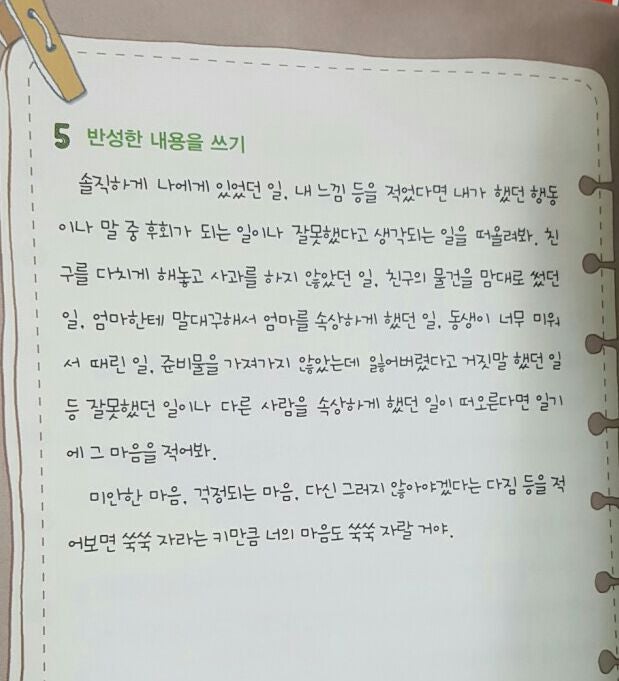 5 반성한 내용을 쓰기
솔직하게 나에게 있었던 일, 내 느낌 등을 적었다면 내가 했던 행동
이나 말 중 후회가 되는 일이나 잘못했다고 생각되는 일을 떠올려봐. 친
구를 다치게 해놓고 사과를 하지 않았던 일, 친구의 물건을 맘대로 썼던
일, 엄마한테 말대꾸해서 엄마를 속상하게 했던 일, 동생이 너무 미워
서 때린 일, 준비물을 가져가지 않았는데 잃어버렸다고 거짓말 했던 일
등 잘못했던 일이나 다른 사람을 속상하게 했던 일이 떠오른다면 일기
에 그 마음을 적어봐.
미안한 마음, 걱정되는 마음, 다신 그러지 않아야겠다는 다짐 등을 적
어보면 쑥쑥 자라는 키만큼 너의 마음도 쑥쑥 자랄 거야.